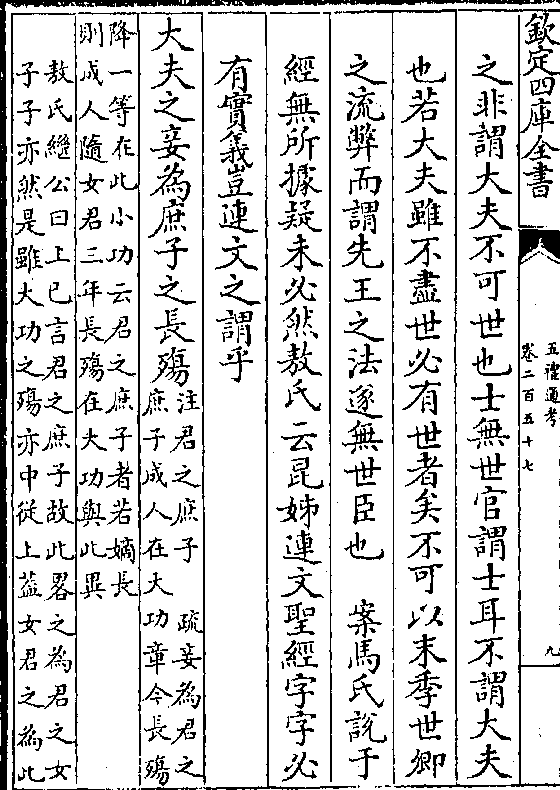 欽定四庫全書
五禮通考
卷二百五十七
九
之非謂大夫不可世也士無世官謂士耳不謂大夫
也若大夫雖不盡世必有世者矣不可以末季世卿
之流弊而謂先王之法遂無世臣也　案馬氏說于
經無所據疑未必然敖氏云昆姊連文聖經字字必
有實義豈連文之謂乎
大夫之妾為庶子之長殤
注君之庶子　疏妾為君之
庶子成人在大功章今長殤
降一等在此小功云君之庶子者若嫡長
則成人隨女君三年長殤在大功與此異
敖氏繼公曰上已言君之庶子故此畧之為君之女
子子亦然是雖大功之殤亦中從上葢女君之為此